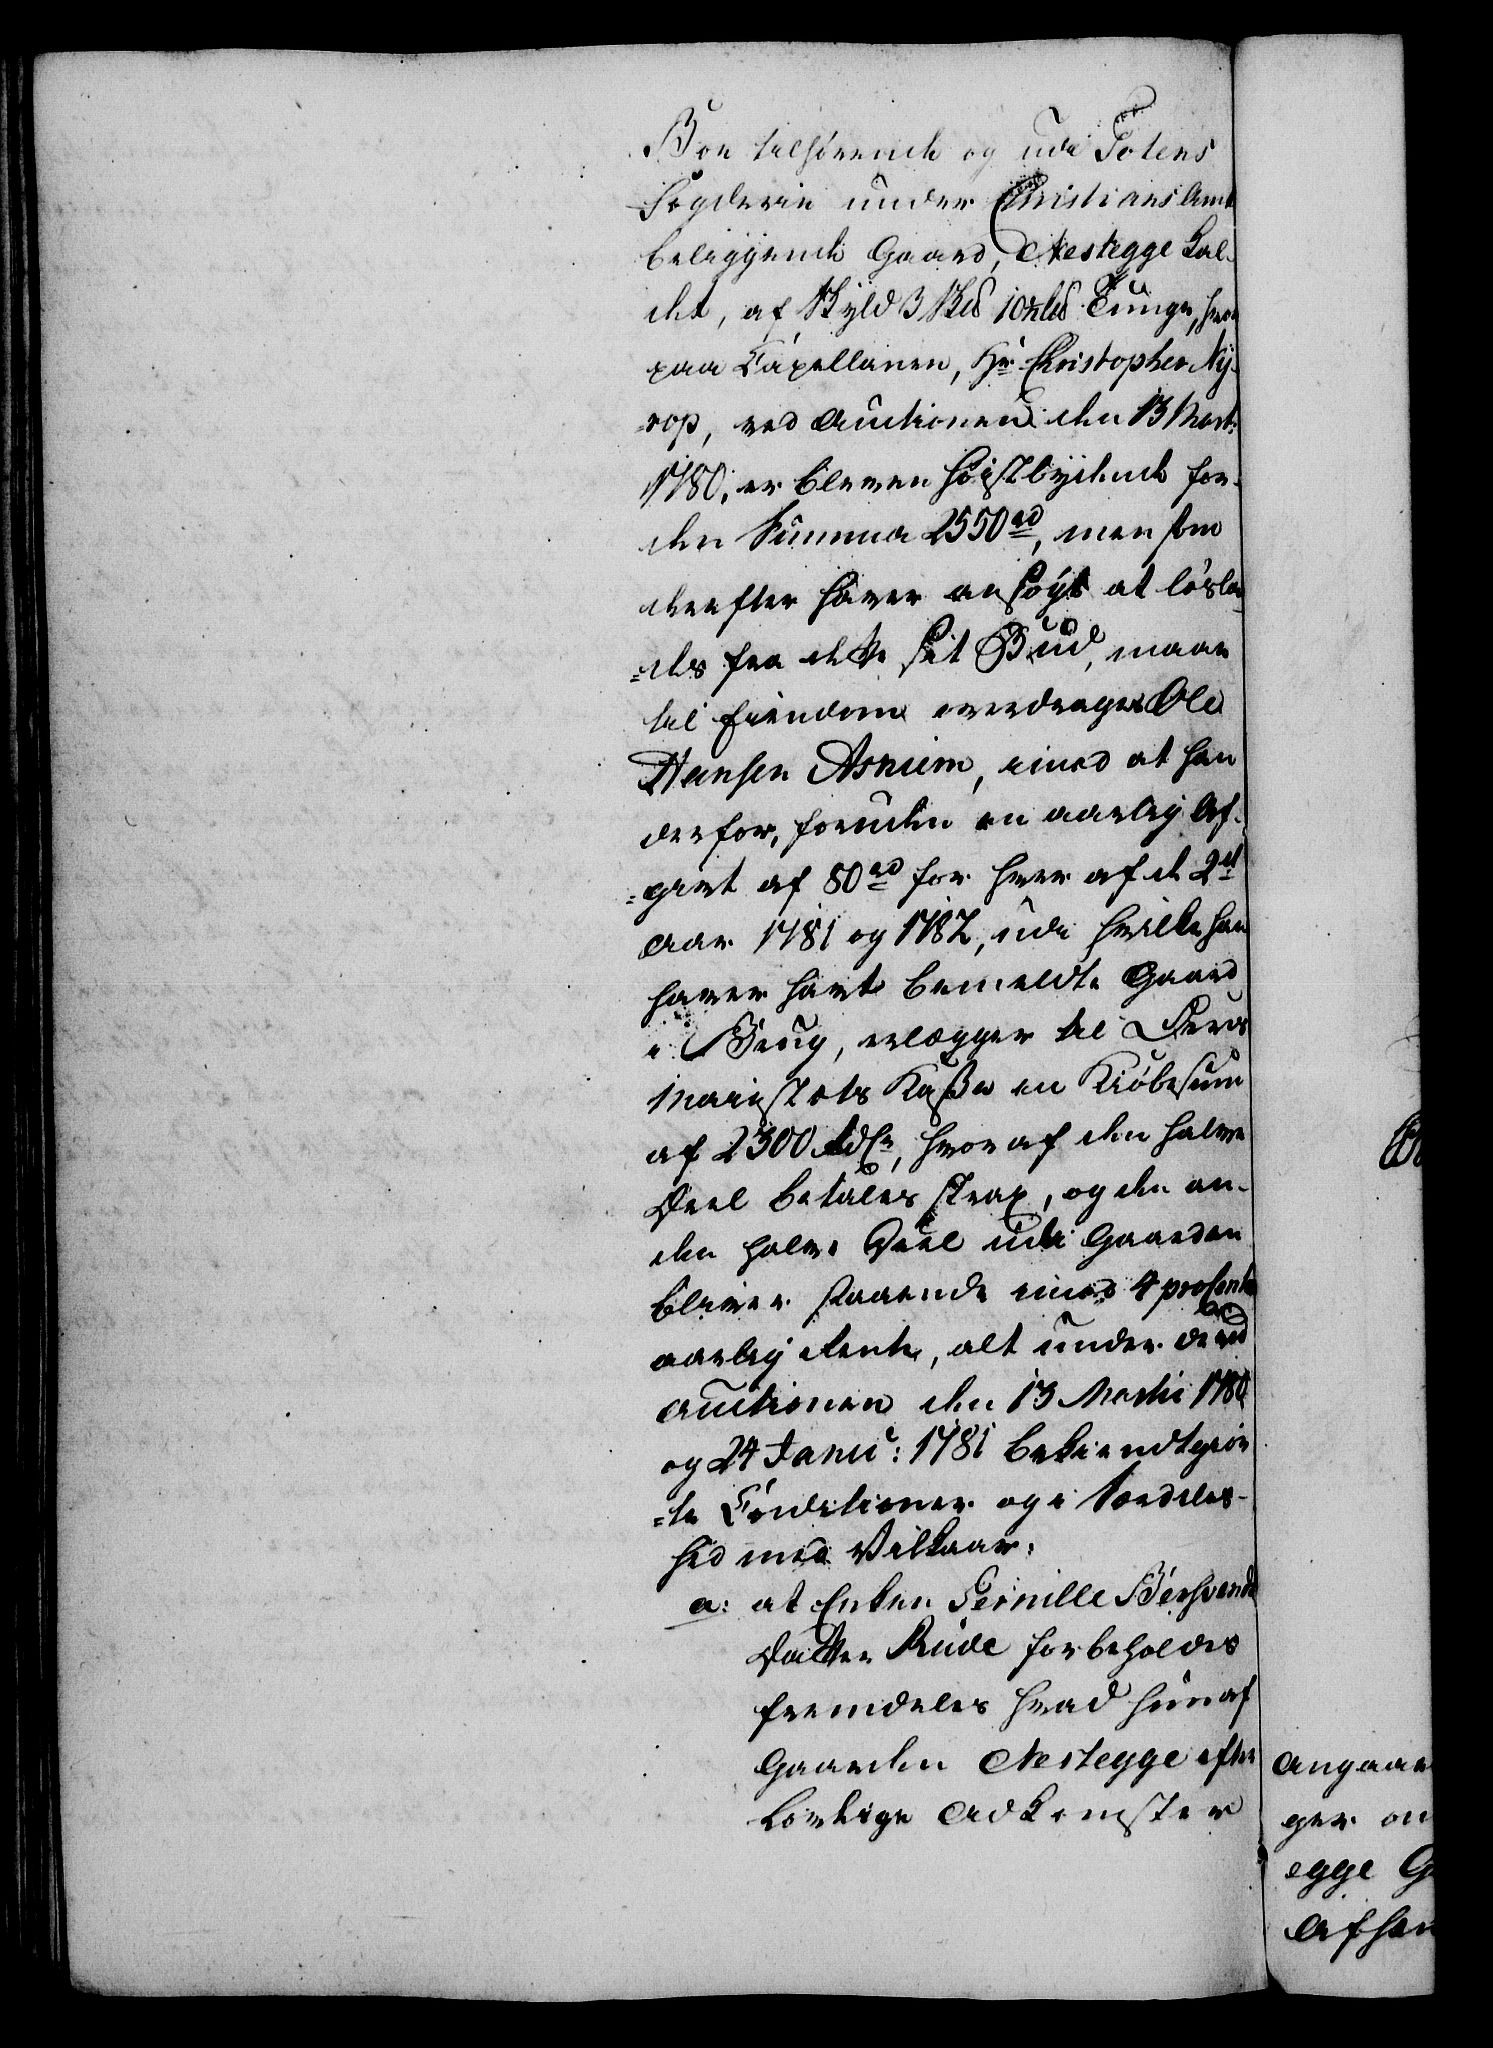 Boe tilhørende og udi Totens
Fogderie under Christians Amt
beliggende Gaard, Nestegge kal-
det, af Skyld 3 Skd 10½ Ls Tunge, hvor
paa Capellanen, Hr Christopher Ny-
rop, ved Auctionen den 13 Marti
1780, er bleven høistbydende for
den Summa 2550 rd, men som
derefter haver ansøgt at løsla-
des fra dette sit Bud, maae
til Eiendom overdrages Ole
Hansen Asnum, imod at han
derfor, foruden en aarlig Af-
givt af 80 rd for hver af de 2de
Aar 1781 og 1782, udi hvilke han
haver havt bemeldte Gaard
i Brug, erlægger til Deres
Majestæts Kasse en Kiøbesum
af 2300 rdr, hvoraf den halve
Deel betales strax, og den an-
den halve Deel udi Gaarden
bliver staaende imod 4 procento
aarlig Rente, alt under de ved
Auctionen den 13 Martii 1780
og 24 Janu: 1781 bekiendtgior
te Conditioner og i Særdeles-
hed med Vilkaar:
a: at Enken Pernille
Datter Rude forbeholdes
fremdeles hvad hun af
Gaarden Nestegge efter
lovlige Adkomster
Angaae
ger om
egge G
Afhan